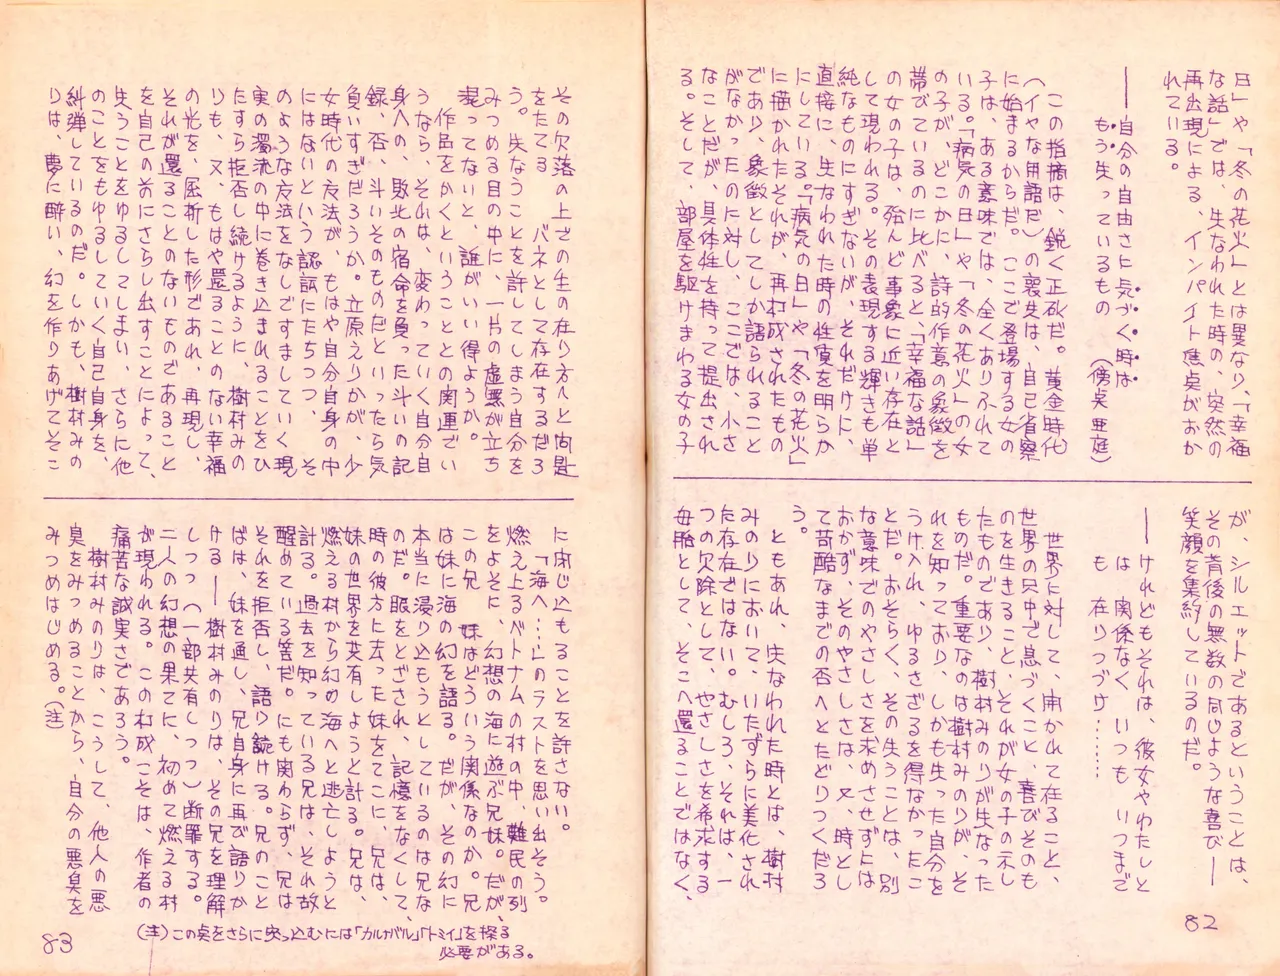 日」や「冬の花火」とは異なり、「幸福
な話」では、失なわれた時の、突然の
再出現による、インパイト焦点がおか
れている。
── 自分の自由さに気づく時は
もう失っているもの (傍点 亜庭)
この指摘は、鋭く正確だ。黄金時代
(イヤな用語だ)の喪失は、自己省察
に始まるからだ。ここで登場する女の
子は、ある意味では、全くありふれて
いる。「病気の日」や「冬の花火」の女
の子が、どこかに、詩的作意の象徴を
帯びているのに比べると、「幸福な話」
の女の子は、殆んど事象に近い存在と
して現われる。その表現する輝きも単
純なものにすぎないが、それだけに、
直接に、失なわれた時の性質を明らか
にしている。「病気の日」や「冬の花火」
に描かれたそれが、再構成されたもの
であり、象徴としてしか語られること
がなかったのに対し、ここでは、小さ
なことだが、具体性を持って提出され
る。そして、部屋を駆けまわる女の子
が、シルエットであるということは、
その背後の無数の同じような喜び──
笑顔を集約しているのだ。
── けれどもそれは、彼女やわたしと
は 関係なく いつも いつまで
も 在りつづけ………
世界に対して、開かれて在ること、
世界の只中で息づくこと、喜びそのも
のを生きること、それが女の子の示し
たものであり、樹村みのりが失なった
ものだ。重要なのは樹村みのりが、そ
れを知っており、しかも失った自分を
うけ入れ、ゆるさざるを得なかったこ
とだ。おそらく、その失うことは、別
な意味でのやさしさを求めさせずには
おかず、そのやさしさは、又、時とし
て苛酷なまでの否へとたどりつくだろ
う。
ともあれ、失なわれた時とは、樹村
みのりにおいて、いたずらに美化され
た存在ではない。むしろ、それは、一
つの欠除として、やさしさを希求する
母胎として、そこへ還ることではなく、
82
その欠落の上での生の在り方へと問是
をたてる バネとして存在するだろ
う。失なうことを許してしまう自分を
みつめる目の中に、一片の虚無が立ち
現ってないと、誰がいい得ようか。
作品をかくということとの関連でい
うなら、それは、変わっていく自分自
身への、敗北の宿命を負った斗いの記
録、否、斗いそのものだといったら気
負いすぎだろうか。立原えりかが、少
女時代の友法が、もはや自分自身の中
にはないという認識にたちつつ、そ
のような友法をなしですましていく現
実の濁流の中に巻き込まれることをひ
たすら拒否し続けるように、樹村みの
りも、又、もはや還ることのない幸福
の光を、屈折した形であれ、再現し、
それが還ることのないものであること
を自己の前にさらし出すことによって、
失うことをゆるしてしまい、さらに他
のことをもゆるしていく自己自身を、
糾弾しているのだ。しかも、樹村みの
りは、夢に酔い、幻を作りあげてそこ
に閉じ込もることを許さない。
「海へ……」のラストを思い出そう。
燃え上るベトナムの村の中、難民の列
をよそに、幻想の海に遊ぶ兄妹。だが、
この兄 妹はどういう関係なのか。兄
は妹に海の幻を語る。だが、その幻に
本当に浸り込もうとしているのは兄な
のだ。眼をとざされ、記憶をなくして、
時の彼方に去った妹をてこに、兄は、
妹の世界を共有しようと計る。兄は、
燃える村から幻の海へと逃亡しようと
計る。過去を知っている兄は、それ故
醒めている筈だ。にも関わらず、兄は
それを拒否し、語り続ける。兄のこと
ばは、妹を通し、兄自身に再び語りか
ける── 樹村みのりは、その兄を理解
しつつ(一部共有しつつ)断罪する。
二人の幻想の果てに、初めて燃える村
が現われる。この構成こそは、作者の
痛苦な誠実さであろう。
樹村みのりは、こうして、他人の悪
臭をみつめることから、自分の悪臭を
みつめはじめる。(注)
(注)この点をさらに突っ込むには「カルナバル」「トミイ」を探る
必要がある。
83